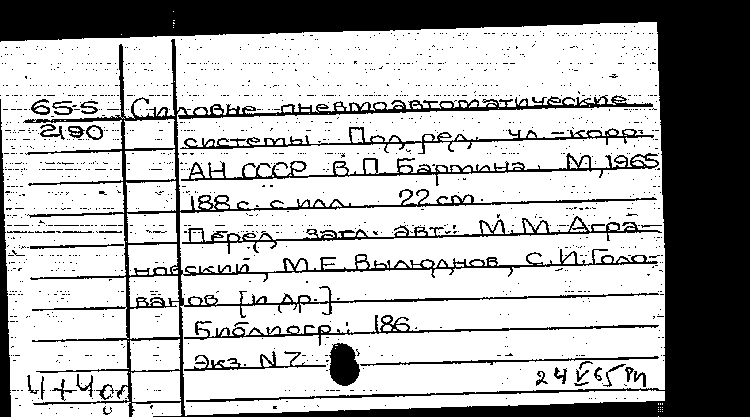 65-5 Силовые пневмоавтоматические
2190
системы. Под ред. чл.-корр.
АН СССР В.П. Бармина. М., 1965
188 с. с илл. 22 cm.
Перед загл. авт.: М.М. Агра-
новский, М.Е. Вылюднов, С.И. Голо-
ванов [и др.].
Библиогр.: 186.
Экз. N 7
24 V 65